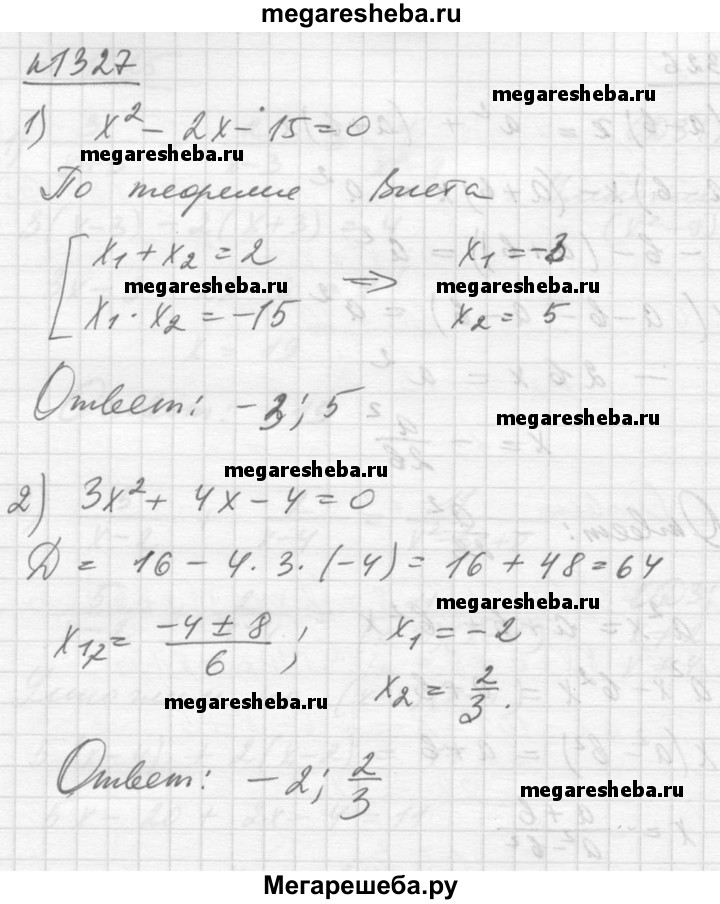 megaresheba.ru
№1327
megaresheba.ru
1) x² - 2x - 15 = 0
megaresheba.ru
По теореме Виета
x₁ + x₂ = 2 => x₁ = -3
megaresheba.ru megaresheba.ru
x₁ · x₂ = -15 x₂ = 5
Ответ: -3; 5
megaresheba.ru
megaresheba.ru
2) 3x² + 4x - 4 = 0
D = 16 - 4 · 3 · (-4) = 16 + 48 = 64
megaresheba.ru
x₁,₂ = (-4 ± 8)/6 ; x₁ = -2
megaresheba.ru
x₂ = 2/3.
Ответ: -2; 2/3
megaresheba.ru
Мегарешеба.ру